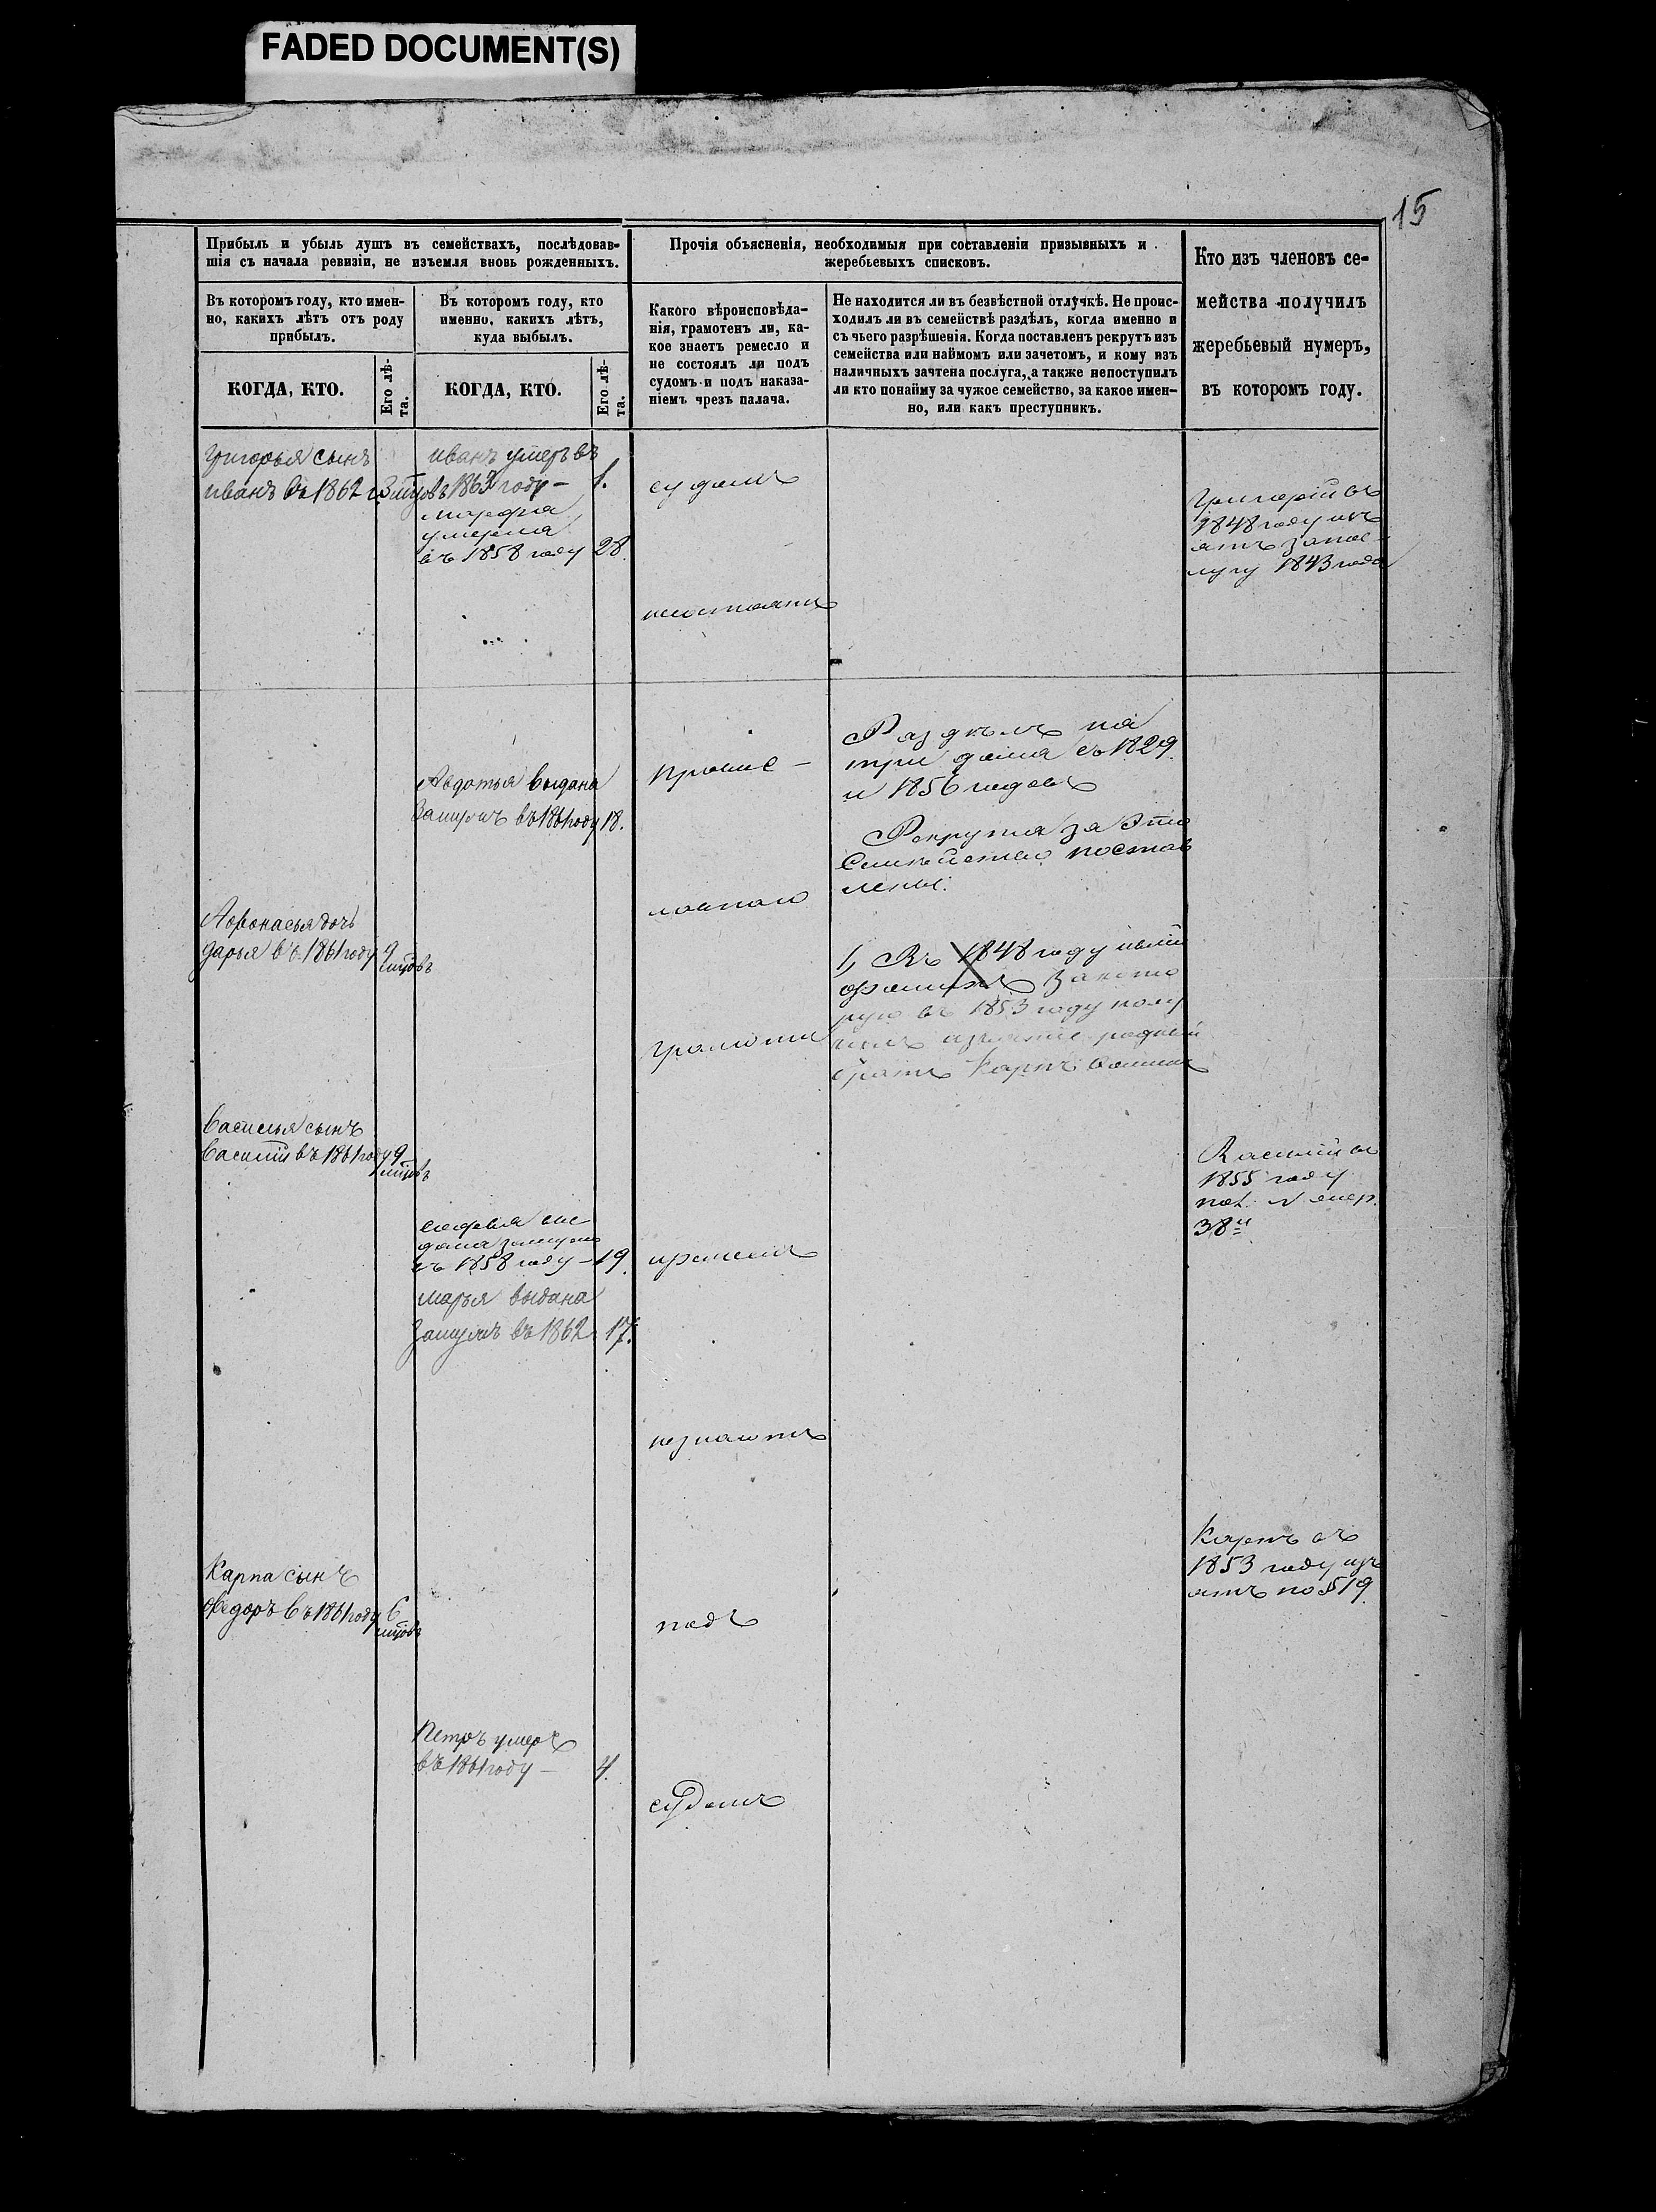 FADED DOCUMENT(S)
15
Прибыль и убыль душъ въ семействахъ, послѣдовав-
шія съ начала ревизіи, не изъемля вновь рожденныхъ.
Въ которомъ году, кто имен-
но, какихъ лѣтъ отъ роду
прибылъ.
КОГДА, КТО.
Его лѣ-
та.
Въ которомъ году, кто
именно, какихъ лѣтъ,
куда выбылъ.
КОГДА, КТО.
Его лѣ-
та.
Прочія объясненія, необходимыя при составленіи призывныхъ и
жеребьевыхъ списковъ.
Какого вѣроисповѣда-
нія, грамотенъ ли, ка-
кое знаетъ ремесло и
не состоялъ ли подъ
судомъ и подъ наказа-
ніемъ чрезъ палача.
Не находится ли въ безвѣстной отлучкѣ. Не проис-
ходилъ ли въ семействѣ раздѣлъ, когда именно и
съ чьего разрѣшенія. Когда поставленъ рекрутъ изъ
семейства или наймомъ или зачетомъ, и кому изъ
наличныхъ зачтена послуга, а также непоступилъ
ли кто понайму за чужое семейство, за какое имен-
но, или какъ преступникъ.
Кто изъ членовъ се-
мейства получилъ
жеребьевый нумеръ,
въ которомъ году.
Григорья сынъ
иванъ въ 1862 г
иванъ умеръ въ
въ 1863 году – 1.
марфа
умерла
въ 1858 году 28.
судомъ
несостоятъ
Григорій въ
1848 году изъ
ятъ за пос-
лугу 1843 года
Авдотья выдана
Замужъ въ 1861 году 18.
Раздѣлъ на
три дома съ 1829.
и 1856 годовъ
Рекрута за это
Семѣйство постав
лены.
Афонасья дочь
дарья въ 1861 году 9
мцовъ
1, Въ 1848 году
въ 1853 году полу
братъ Карпъ
грамоти
Василья сынъ
Василій въ 1861 году 9
мцовъ
Василій въ
1855 году
пол. №
38й
дана замужъ
въ 1858 году – 19.
марья выдана
Замужъ въ 1862 17.
незнаютъ
Карпа сынъ
Федоръ въ 1861 году 6
мцовъ
Карпъ въ
1853 году изъ
ятъ по § 19.
подъ
Петръ умеръ
въ 1861 году – 4.
судомъ